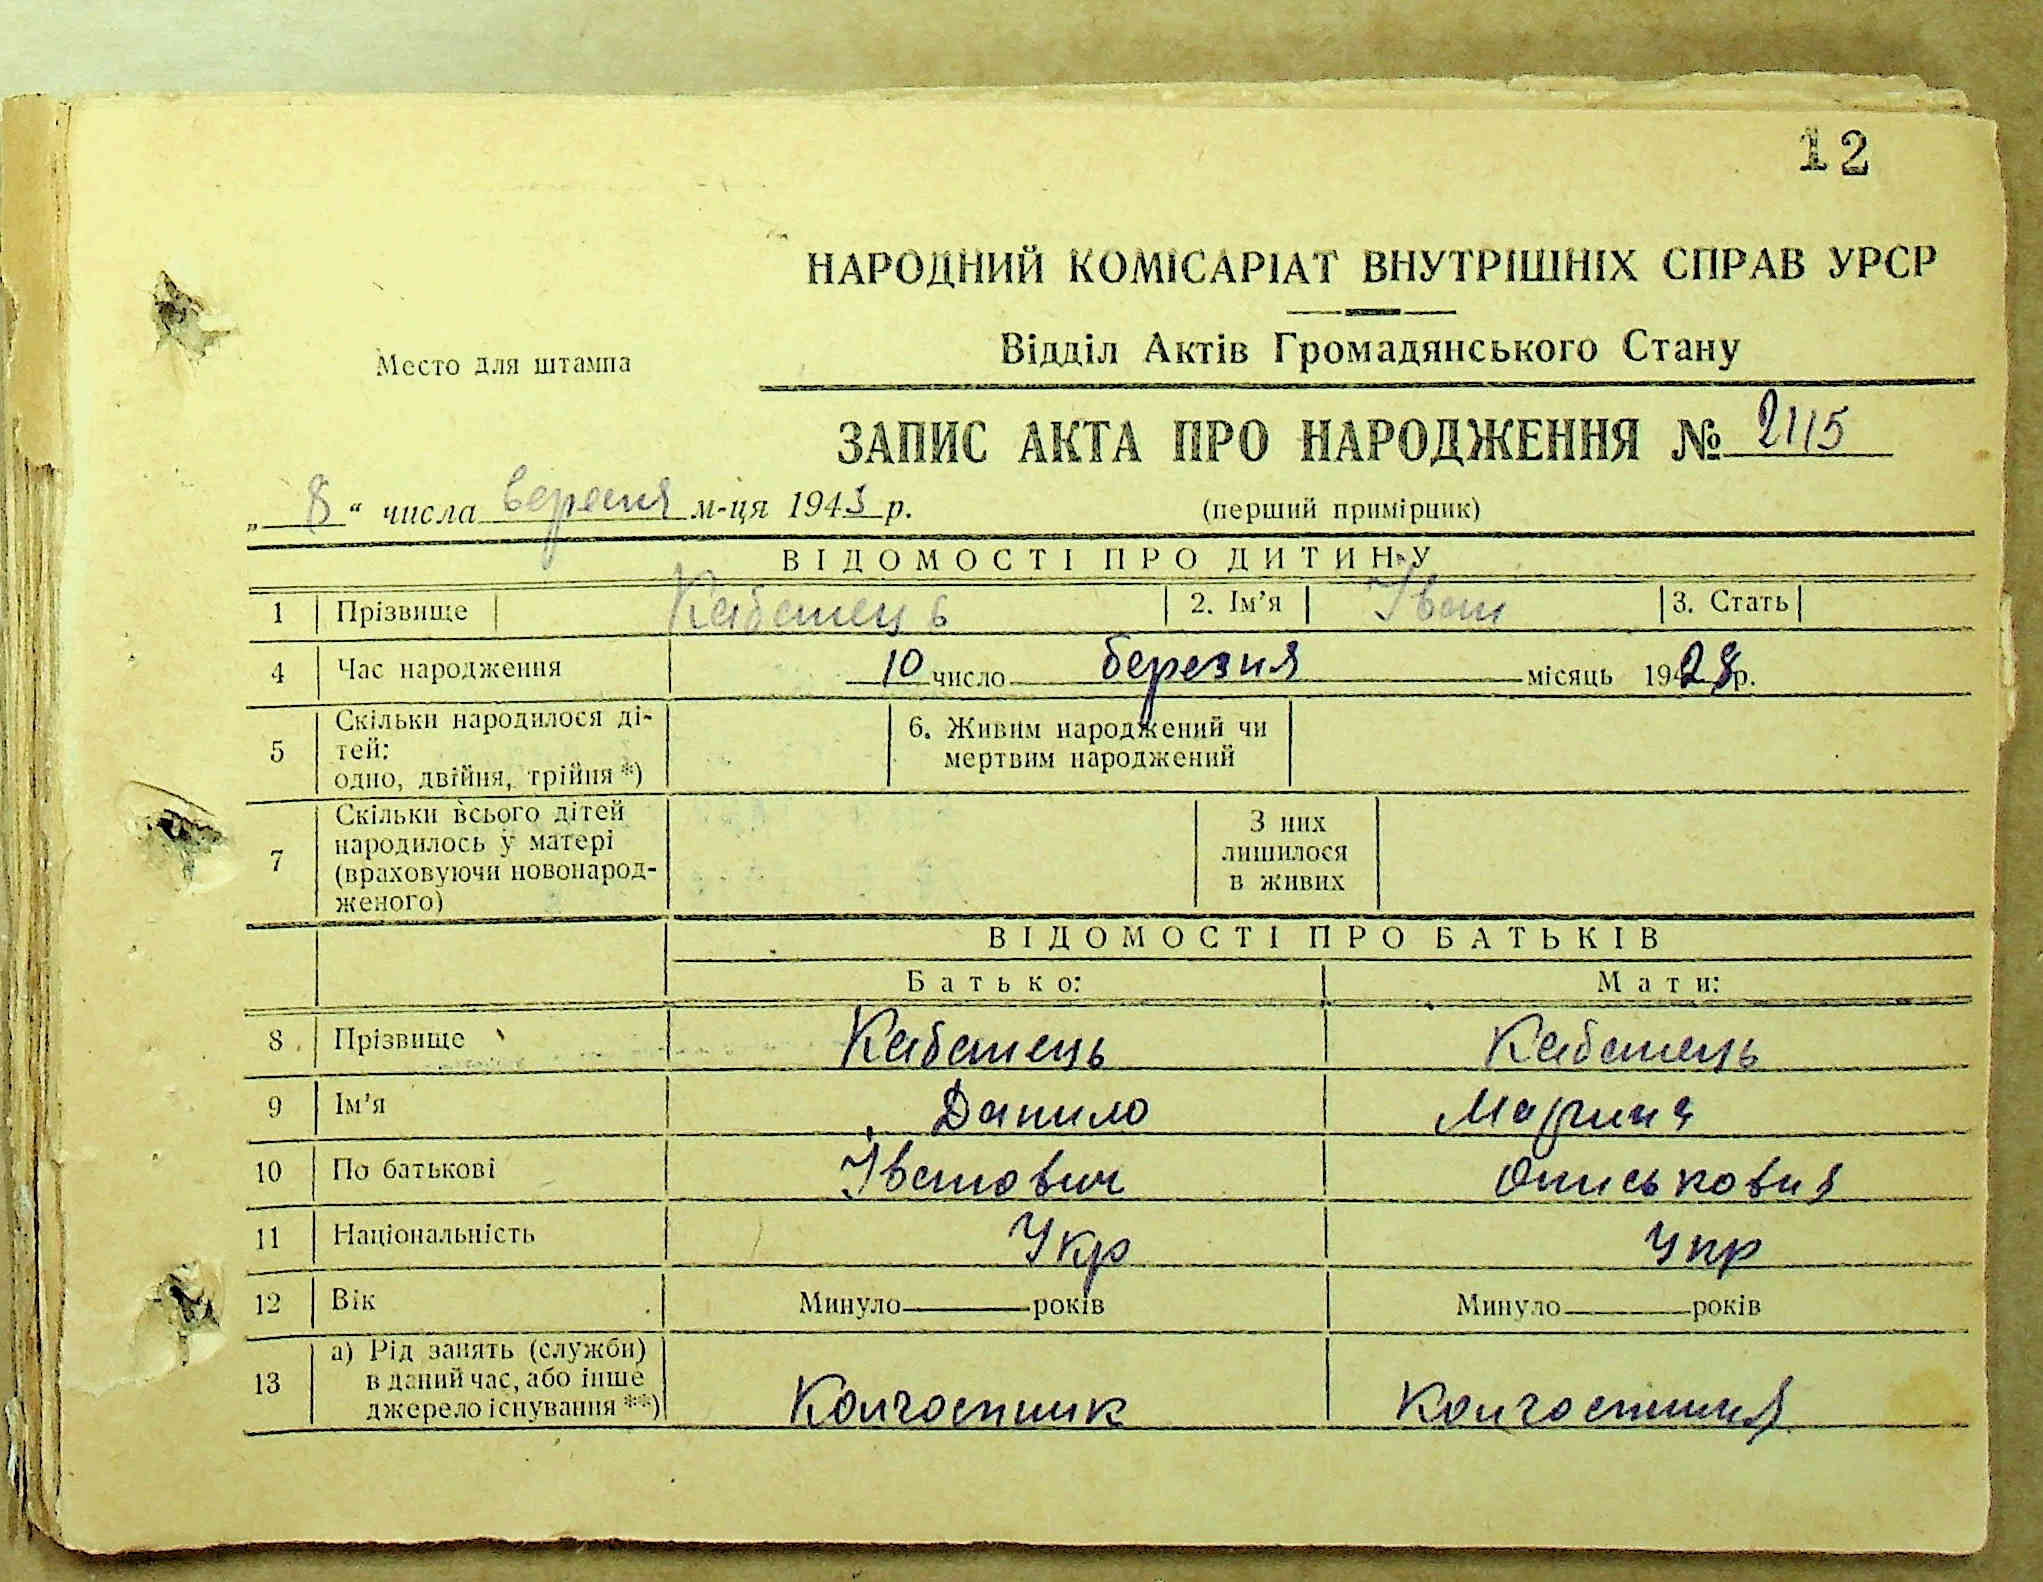 12
НАРОДНИЙ КОМІСАРІАТ ВНУТРІШНІХ СПРАВ УРСР
Відділ Актів Громадянського Стану
Место для штампа
ЗАПИС АКТА ПРО НАРОДЖЕННЯ № 2115
„ 8 “ числа вересня м-ця 1943 р. (перший примірник)
ВІДОМОСТІ ПРО ДИТИНУ
1 Прізвище Кабанець 2. Ім’я Іван 3. Стать
4 Час народження 10 число березня місяць 1928 р.
5 Скільки народилося ді-
тей:
одно, двійня, трійня *)
6. Живим народжений чи
мертвим народжений
7 Скільки всього дітей
народилось у матері
(враховуючи новонарод-
женого)
З них
лишилося
в живих
ВІДОМОСТІ ПРО БАТЬКІВ
Батько: Мати:
8 Прізвище Кабанець Кабанець
9 Ім’я Данило Марина
10 По батькові Іванович Ониськовна
11 Національність Укр Укр
12 Вік Минуло років Минуло років
13 а) Рід занять (служби)
в даний час, або інше
джерело існування **)
Колгоспник Колгоспниця